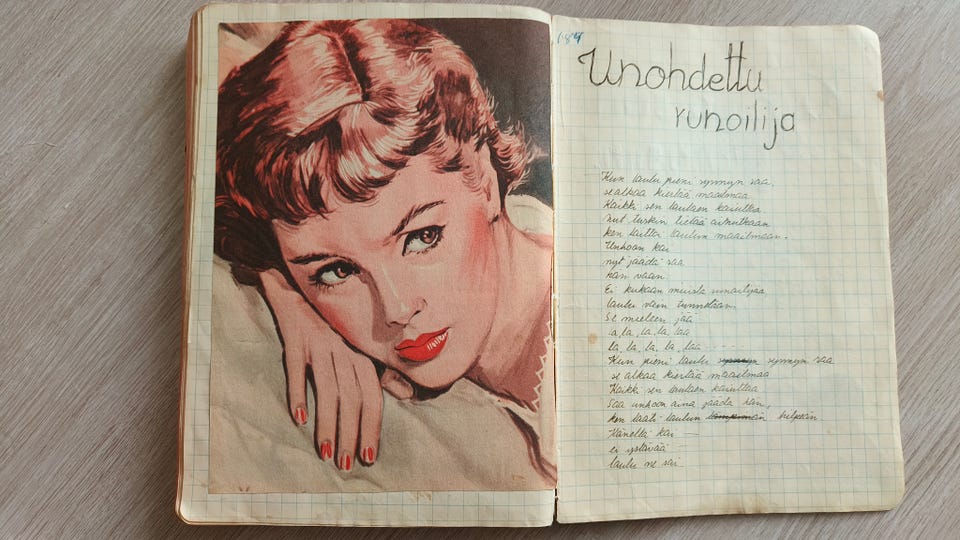 184
Unohdettu
runoilija
Kun laulu pieni synnyn saa,
se alkaa kiertää maailmaa
Kaikki sen laulaen kaiuttaa
nut tuskin tietää ainutkaan
ken laittoi laulun maailmaan.
Unhoon kai
nyt jäädä saa
hän vaan
Ei kukaan muista runoilijaa
laulu vain tunnetaan.
Se mieleen jäi
la, la, la, la, laa
la, la, la, la, laa
Kun pieni laulu synnyn saa
se alkaa kiertää maailmaa
Kaikki sen laulaen kaiuttaa
Saa unhoon aina jäädä hän,
ken laati laulun helpeän
Häneltä kai
ei ystävää
laulu ne sai